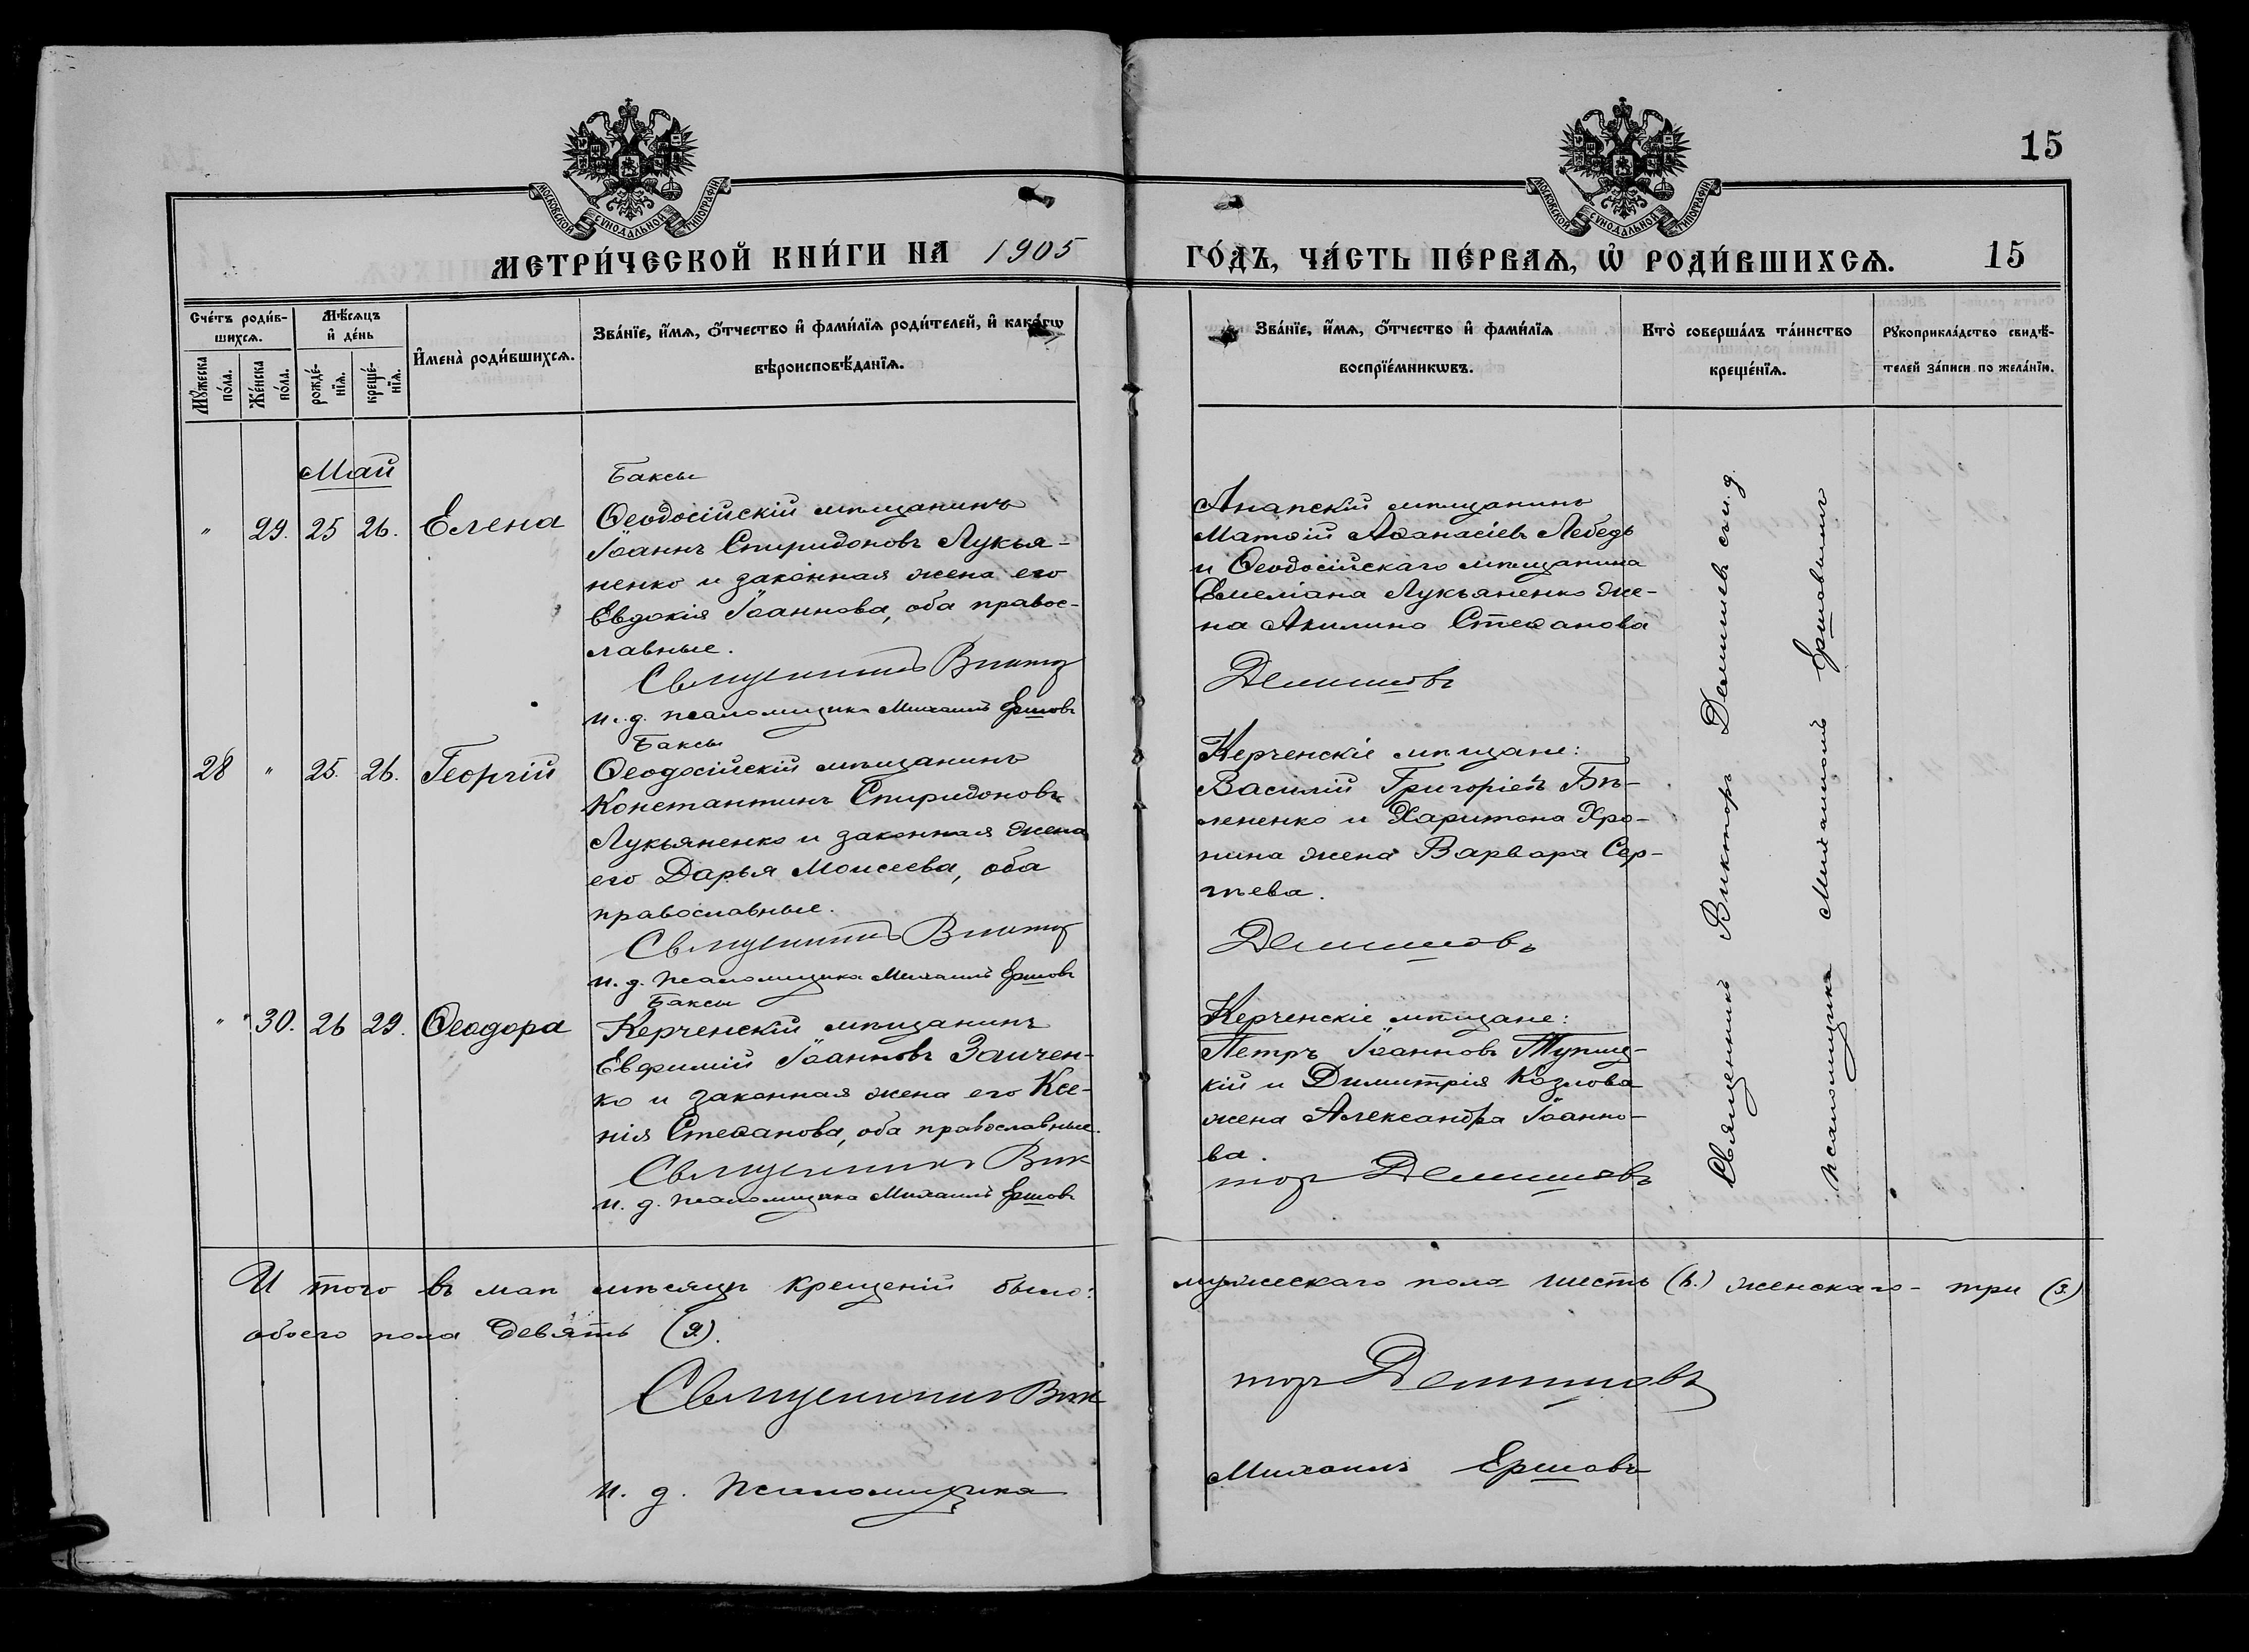 15
МОСКОВСКОЙ СУНОДАЛЬНОЙ ТИПОГРАФІИ.
МОСКОВСКОЙ СУНОДАЛЬНОЙ ТИПОГРАФІИ.
МЕТРИ́ЧЕСКОЙ КНИ́ГИ НА 1905 ГО́ДЪ, ЧА́СТЬ ПЕ́РВАѦ, Ѡ РОДИ́ВШИХСѦ. 15
Сче́тъ роди́в-
шихсѧ.
Мꙋ́жеска
по́ла.
Же́нска
по́ла.
Мѣ́сѧцъ
и҆ де́нь
рожде́-
нїѧ.
креще́-
нїѧ.
И҆мена̀ роди́вшихсѧ.
Зва́нїе, и҆́мѧ, ѻ҆́тчество и҆ фами́лїѧ роди́телей, и҆ како́гѡ
вѣроисповѣ́данїѧ.
Зва́нїе, и҆́мѧ, ѻ҆́тчество и҆ фами́лїѧ
воспрїе́мникѡвъ.
Кто̀ соверша́лъ та́инство
креще́нїѧ.
Рꙋкоприкла́дство свидѣ́-
телей за́писи по жела́нїи.
Май
" 29. 25 26. Елена
Баксы
Ѳеодосійскій мѣщанинъ
Іоаннъ Спиридоновъ Лукья-
ненко и законная жена его
Евдокія Іоаннова, оба правос-
лавные.
Священникъ Виктор
и. д. псаломщика Михаилъ Ершовъ
Анапскій мѣщанинъ
Матѳій Аѳанасіевъ Лебедь
и Ѳеодосійскаго мѣщанина
Емеліана Лукьяненко же-
на Акилина Стеѳанова
Демишовъ
28 " 25. 26. Георгій
Баксы
Ѳеодосійскій мѣщанинъ
Константинъ Спиридоновъ
Лукьяненко и законная жена
его Дарья Моисеева, оба
православные.
Священникъ Виктор
и. д. псаломщика Михаилъ Ершовъ
Керченскіе мѣщане:
Василій Григоріевъ Бѣ-
лененко и Харитона Хро-
нина жена Варвара Сер-
гѣева.
Демишовъ
" 30. 26 29. Ѳеодора
Баксы
Керченскій мѣщанинъ
Евфимій Іоанновъ Заичен-
ко и законная жена его Ксе-
нія Стеѳанова, оба православные.
Священникъ Вик
и. д. псаломщика Михаилъ Ершовъ
Керченскіе мѣщане:
Петръ Іоанновъ
кій и Димитрія Козлова
жена Александра Іоанно-
ва.
тор Демишовъ
Священникъ Викторъ Демишевъ
Псаломщикъ Михаилъ Ершовъ
И того въ маѣ мѣсяцѣ крещеній было: мужескаго пола шесть (6.) женскаго - три (3.)
обоего пола девять (9.).
Священникъ Вик тор Демишовъ
и. д. Псаломщика Михаилъ Ершовъ